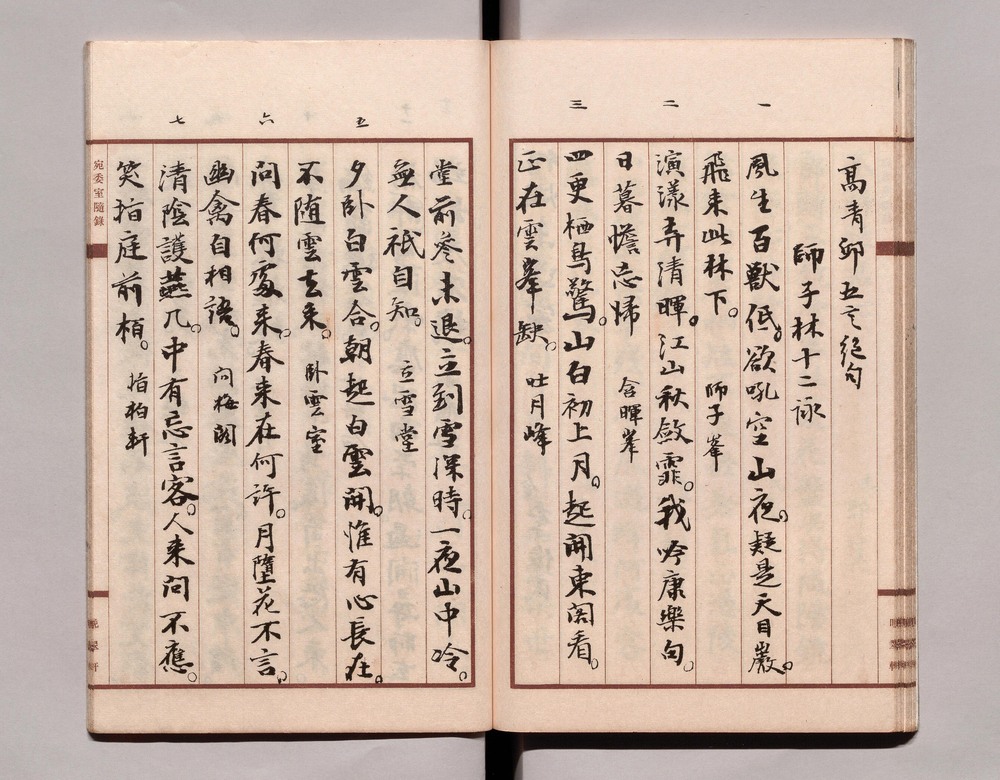 一
二
三
高青邱五言絕句
師子林十二詠
風生百獸低。欲吼空山夜。疑是天目巖。
飛来此林下。 師子峯
演漾弄清暉。江山秋斂霏。我吟康樂句。
日暮憺忘歸 含暉峯
四更栖鳥驚。山白初上月。起開東閣看。
正在雲峯缺。 吐月峰
五
六
七
堂前參未退。立到雪深時。一夜山中冷。
無人祇自知。 立雪堂
夕卧白雲合。朝起白雲開。惟有心長在。
不随雲去来。 卧雲室
問春何處来。春来在何許。月墮花不言。
幽禽自相語。 问梅閣
清陰護燕几。中有忘言客。人来問不應。
笑指庭前栢。 指柏軒
宛委室隨錄